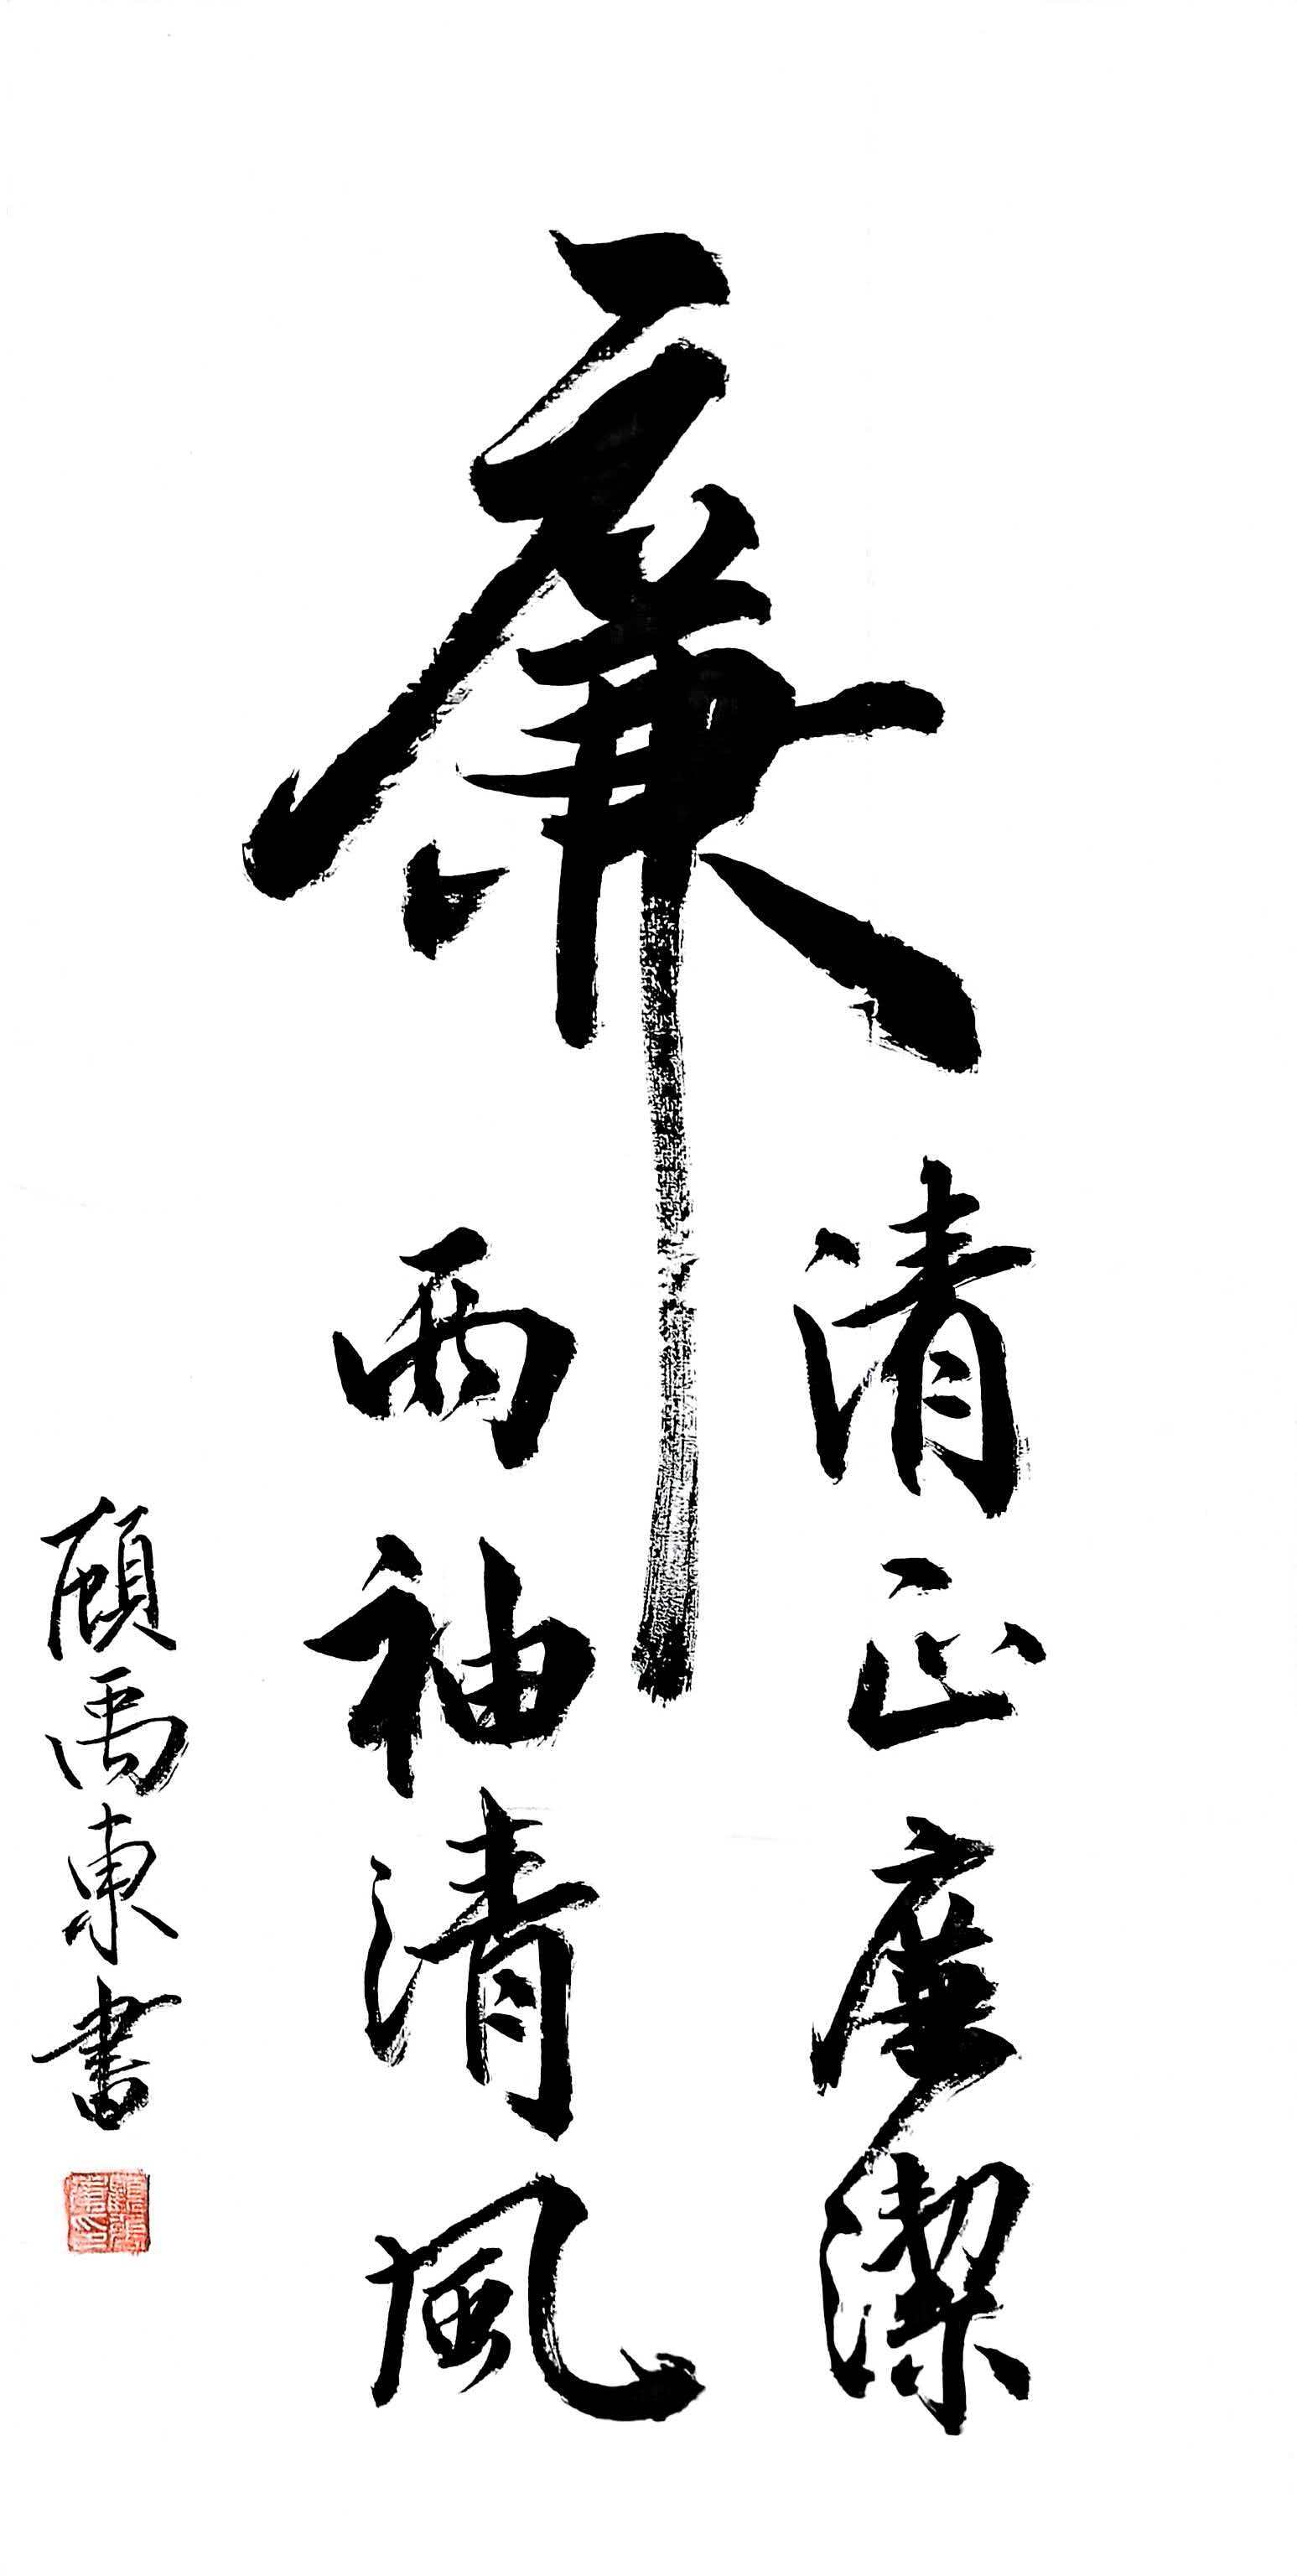 廉
清正廉潔
兩袖清風
顧禹東書